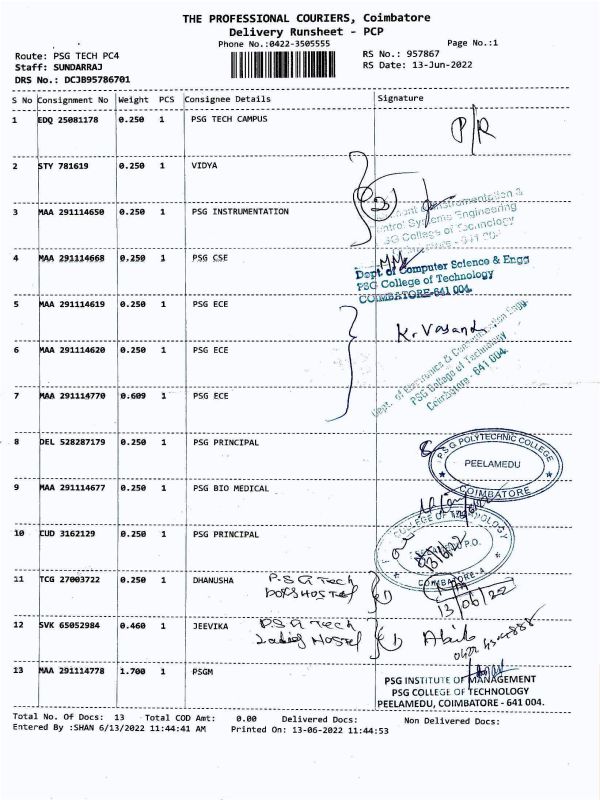 THE PROFESSIONAL COURIERS, Coimbatore
Delivery Runsheet - PCP
Phone No.:0422-3505555
Page No.:1
Route: PSG TECH PC4
RS No.: 957867
Staff: SUNDARRAJ
RS Date: 13-Jun-2022
DRS No.: DCJB95786701
S No Consignment No Weight PCS Consignee Details Signature
1 EDQ 25081178 0.250 1 PSG TECH CAMPUS P/R
2 STY 781619 0.250 1 VIDYA
3 MAA 291114650 0.250 1 PSG INSTRUMENTATION
Instrumentation &
Control Systems Engineering
PSG College of Technology
4 MAA 291114668 0.250 1 PSG CSE
Dept. of Computer Science & Engg
PSG College of Technology
COIMBATORE-641 004.
5 MAA 291114619 0.250 1 PSG ECE
K. Vasand
6 MAA 291114620 0.250 1 PSG ECE
Dept. of Electronics & Communication Engg.
PSG College of Technology
Coimbatore - 641 004.
7 MAA 291114770 0.609 1 PSG ECE
8 DEL 528287179 0.250 1 PSG PRINCIPAL
PSG POLYTECHNIC COLLEGE
PEELAMEDU
COIMBATORE
9 MAA 291114677 0.250 1 PSG BIO MEDICAL
10 CUD 3162129 0.250 1 PSG PRINCIPAL
COLLEGE OF TECHNOLOGY
P.O.
COIMBATORE-4
13/6/22
11 TCG 27003722 0.250 1 DHANUSHA P.S.G Tech
HOSTel
13/06/22
12 SVK 65052984 0.460 1 JEEVIKA P.S.G Tech
Ladies HOSTel
13 MAA 291114778 1.700 1 PSGM
PSG INSTITUTE OF MANAGEMENT
PSG COLLEGE OF TECHNOLOGY
PEELAMEDU, COIMBATORE - 641 004.
Total No. Of Docs: 13 Total COD Amt: 0.00 Delivered Docs: Non Delivered Docs:
Entered By :SHAN 6/13/2022 11:44:41 AM Printed On: 13-06-2022 11:44:53